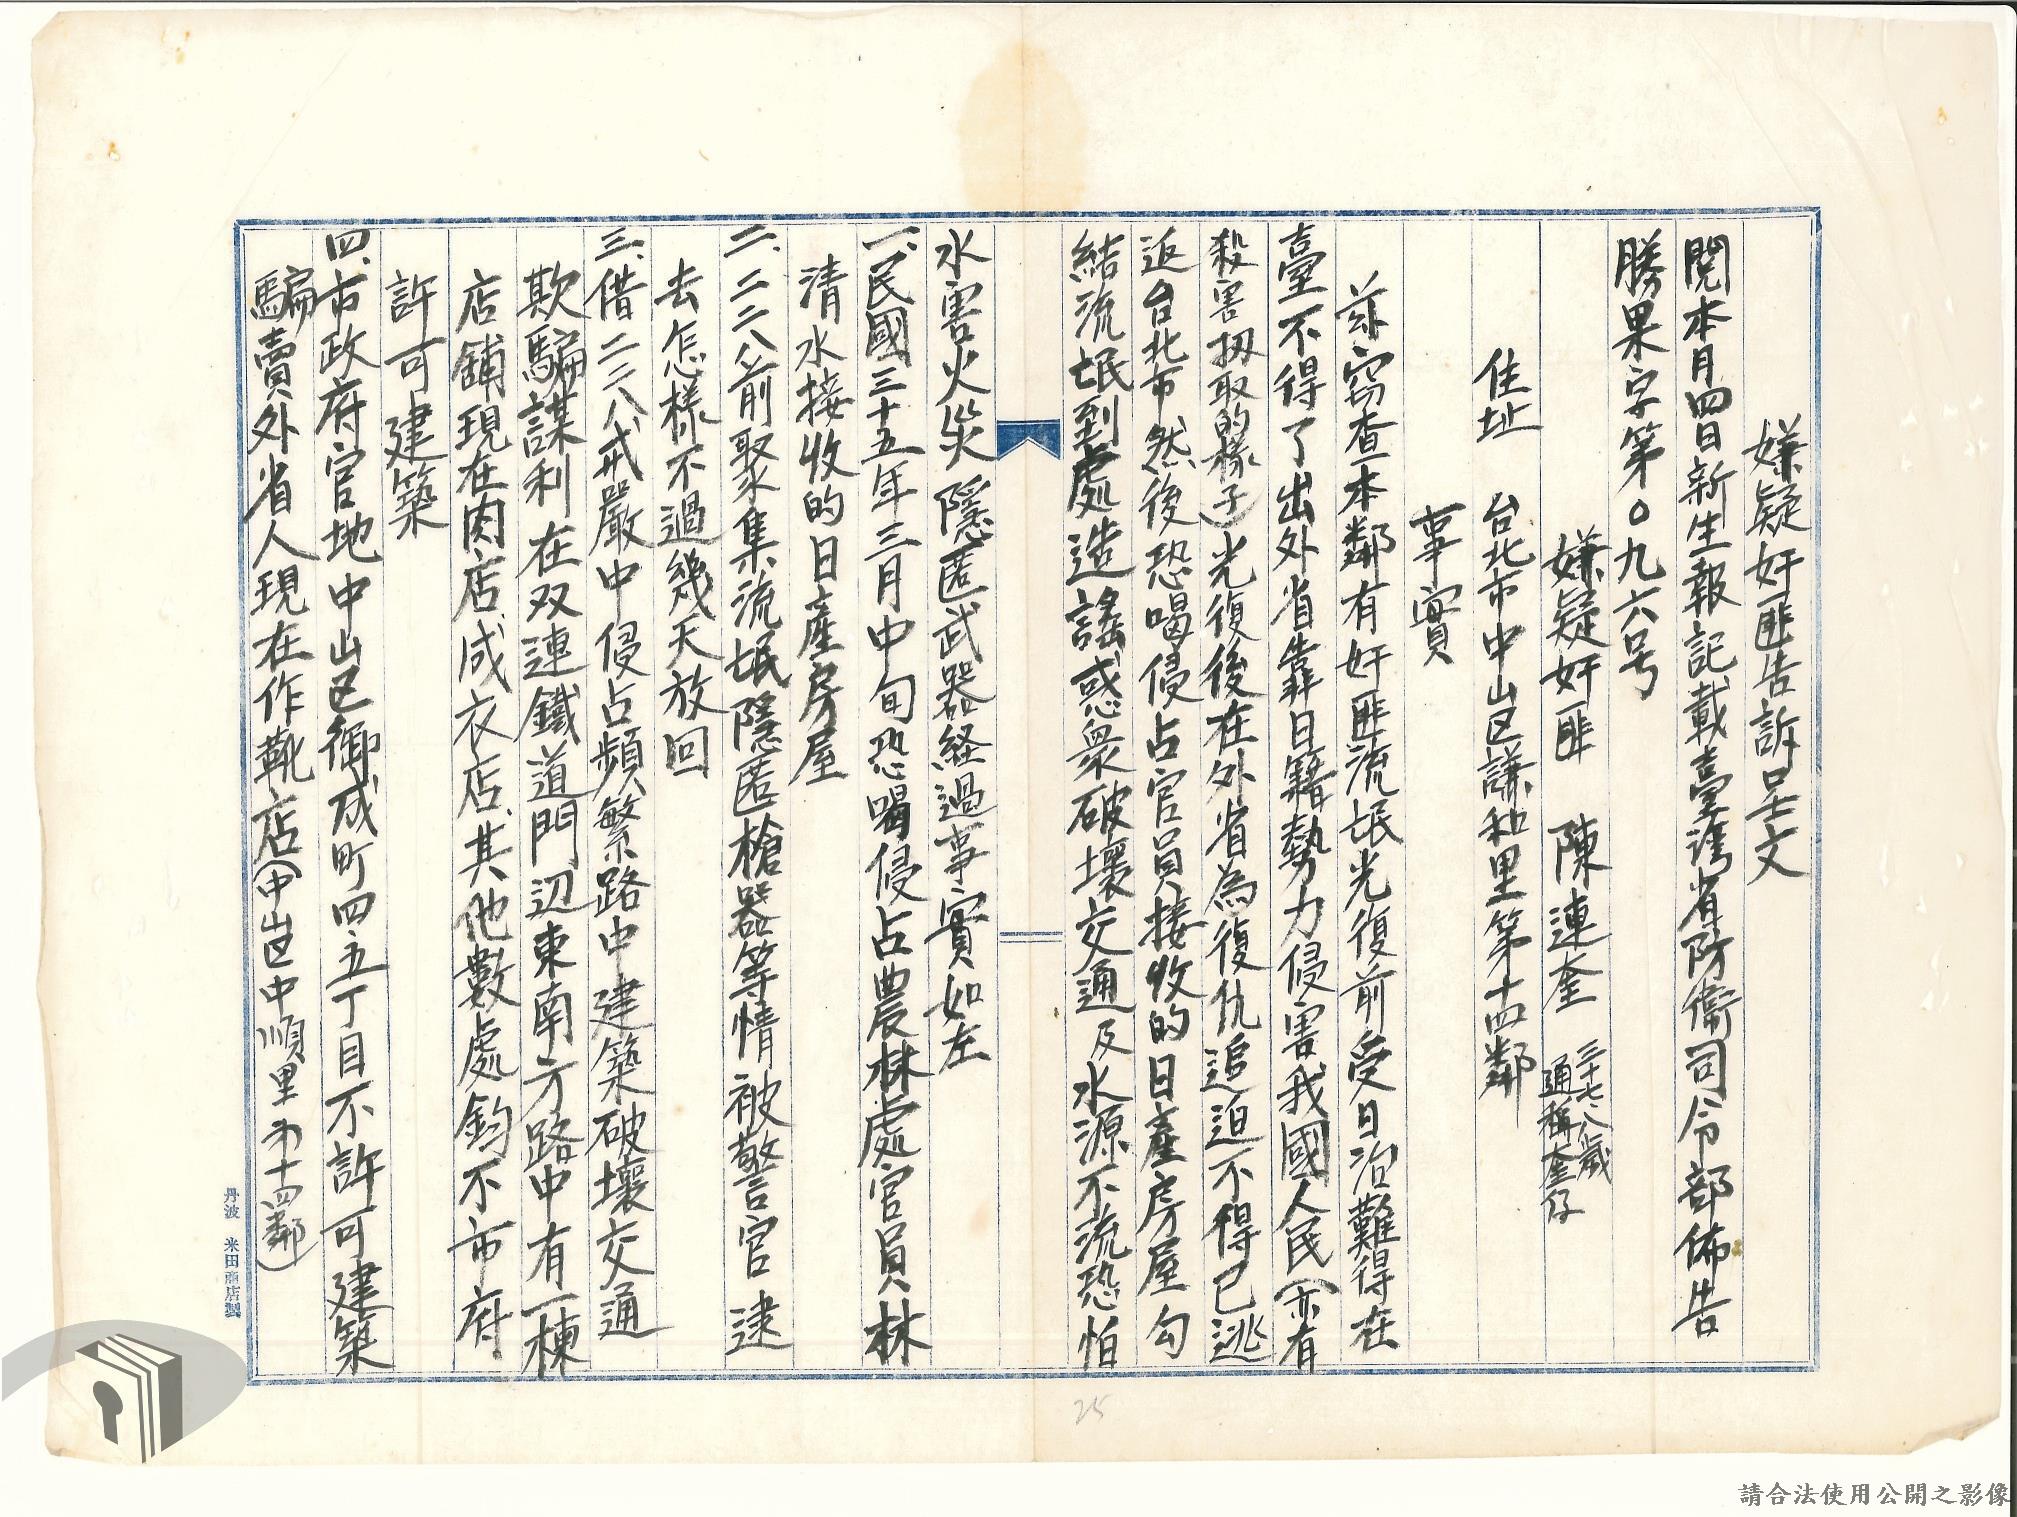 嫌疑奸匪告訴呈文
閱本月四日新生報記載臺灣省防衛司令部佈告
勝果字第〇九六号
嫌疑奸匪 陳連奎 三十七、八歲 通稱奎仔
住址 台北市中山区謙和里第十四鄰
事實
茲窃查本鄰有奸匪流氓光復前受日治難得在
臺不得了出外省靠日籍勢力侵害我國人民(亦有
殺害扨取的樣子)光復後在外省為復仇追迫不得已逃
返台北市然後恐喝侵占官員接收的日產房屋勾
結流氓到處造謠惑衆破壞交通及水源不流恐怕
水害火災隱匿武器経過事實如左
一、民國三十五年三月中旬恐喝侵占農林處官員林
清水接收的日產房屋
二、二二八前聚集流氓隱匿槍器等情被警官逮
去怎樣不過幾天放回
三、借二二八戒嚴中侵占頻繁路中建築破壞交通
欺騙謀利在双連鐵道門辺東南方路中有一棟
店鋪現在肉店、成衣店、其他數處鈞不市府
許可建築
四、市政府官地中山区御成町四、五丁目不許可建築
騙賣外省人現在作靴店(中山区中順里第十四鄰)
丹波 米田商店製
25
請合法使用公開之影像